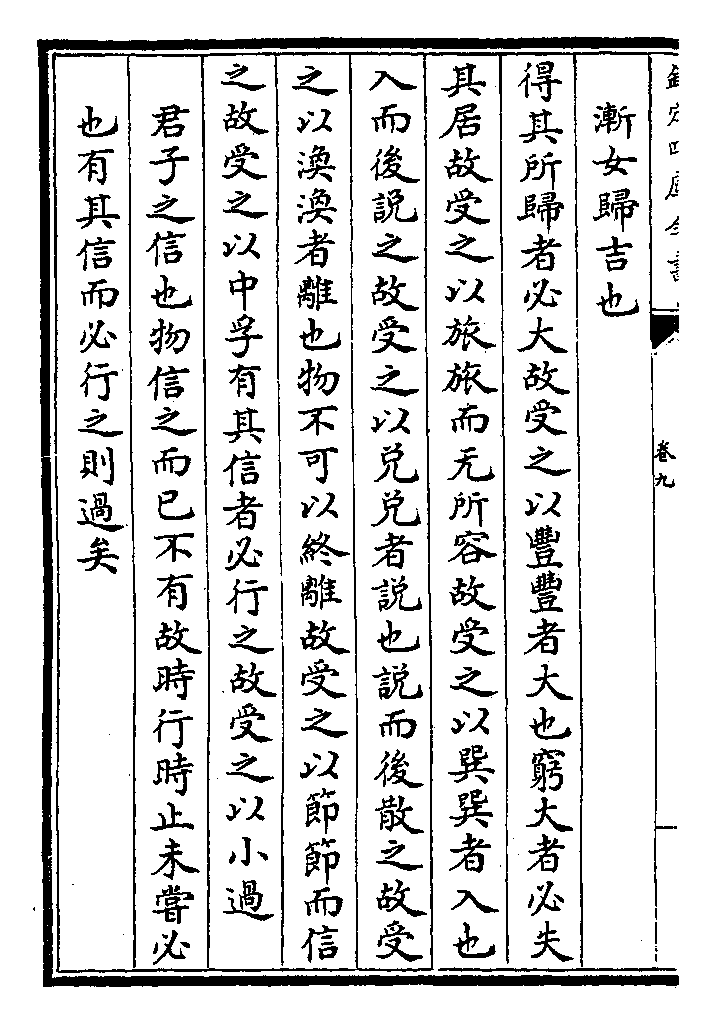 欽定四庫全書
卷九
漸女歸吉也
得其所歸者必大故受之以豐豐者大也窮大者必失
其居故受之以旅旅而无所容故受之以巽巽者入也
入而後説之故受之以兑兑者説也説而後散之故受
之以渙渙者離也物不可以終離故受之以節節而信
之故受之以中孚有其信者必行之故受之以小過
君子之信也物信之而已不有故時行時止未嘗必
也有其信而必行之則過矣